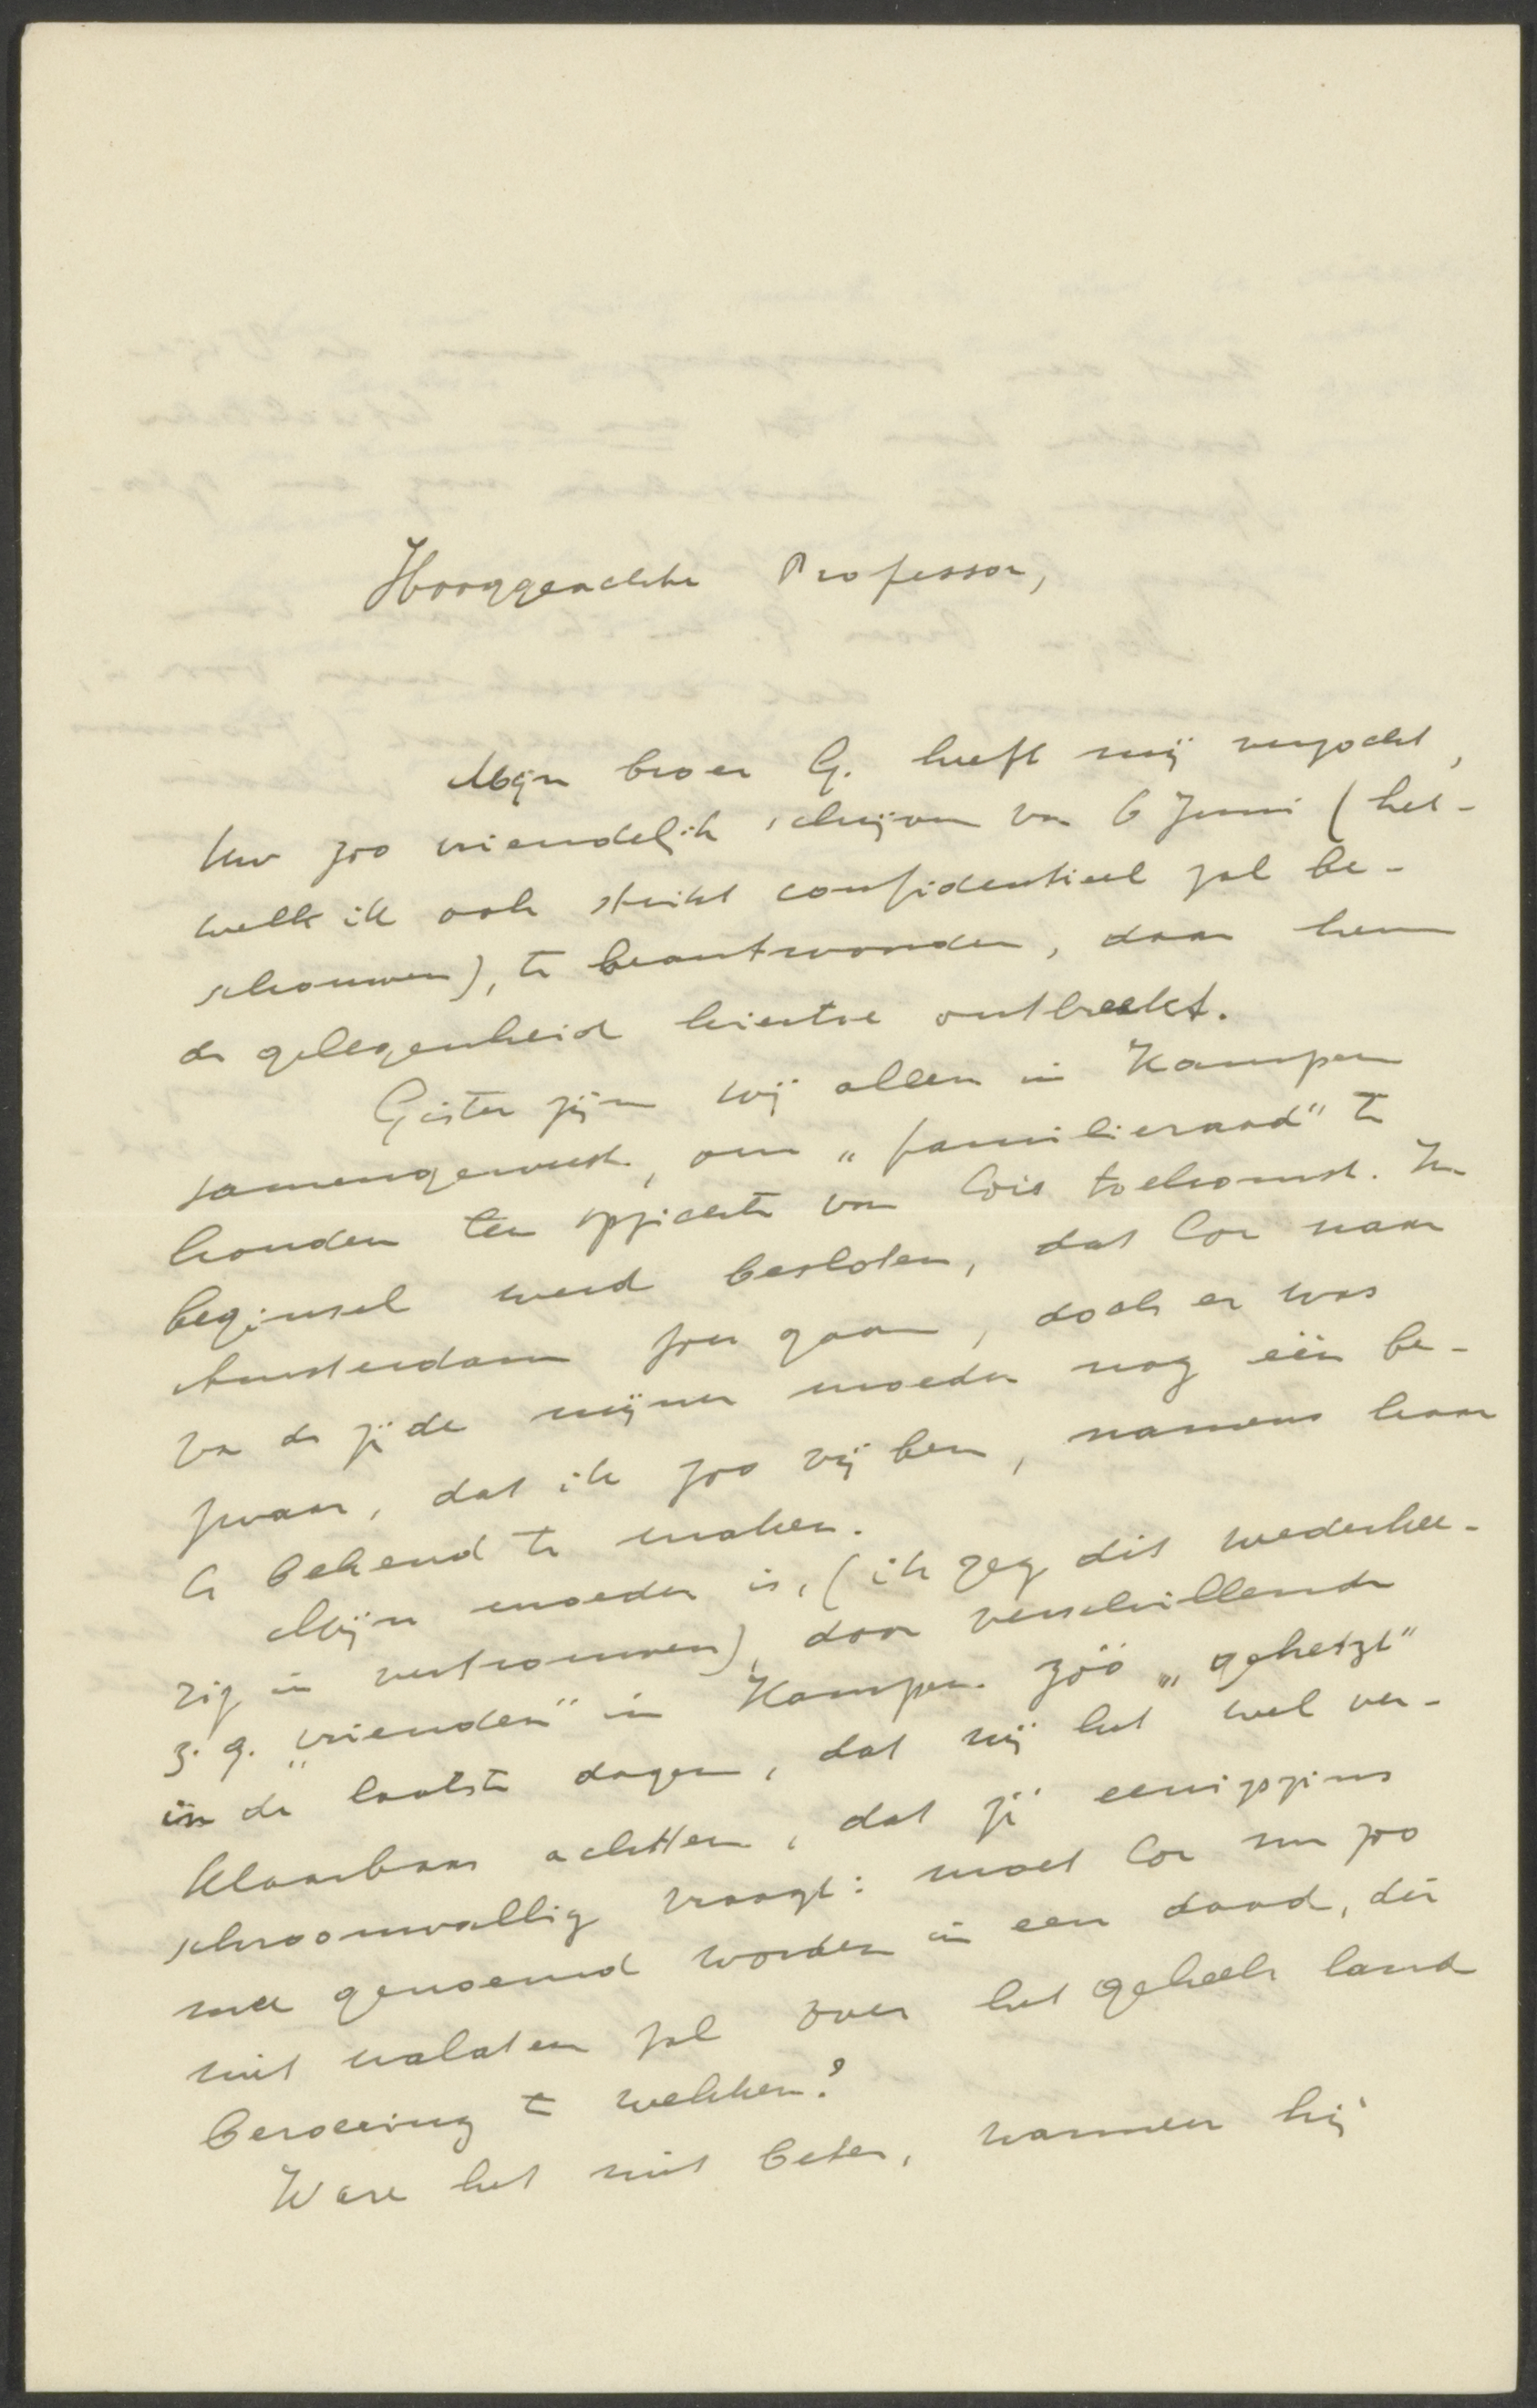 Hooggeachte Professor,
Mijn broer G. heeft mij verzocht,
Uw zoo vriendelijk schrijven van 6 Juni (het-
welk ik ook strikt confidentieel zal be-
schouwen), te beantwoorden, daar hem
de gelegenheid hiertoe ontbreekt.
Gister zijn wij allen in Kampen
samengeweest, om „familieraad" te
houden ten opzichte van Cor's toekomst. In
beginsel werd besloten, dat Cor naar
Amsterdam zou gaan, doch er was
van de zijde mijner moeder nog één be-
zwaar, dat ik zoo vrij ben, namens haar
U bekend te maken.
Mijn moeder is, (ik zeg dit wederkee-
rig in vertrouwen), door verschillende
z.g. „vrienden" in Kampen zóó „gehetzt"
in de laatste dagen, dat wij het wel ver-
klaarbaar achtten, dat zij eenigszins
schroomvallig vraagt: moet Cor nu zoo
mee genoemd worden in een daad, die
niet nalaten zal over het geheele land
beroering te wekken?
Ware het niet beter, wanneer hij